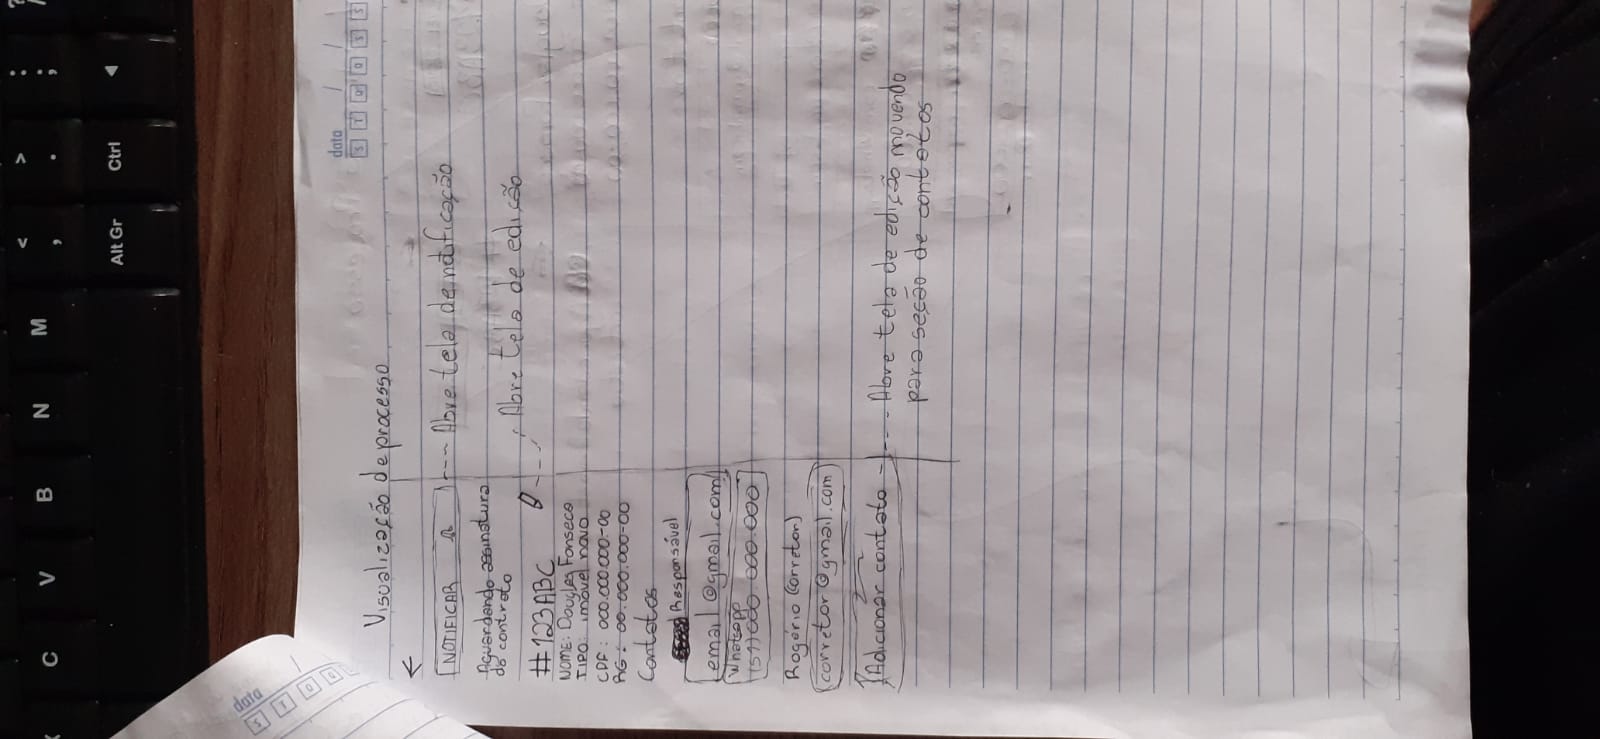 data
S T Q Q S S
Visualização de processo
←
NOTIFICAR --- Abre tela de notificação
Aguardando assinatura
do contrato
#123ABC --- Abre tela de edição
NOME: Douglas Fonseca
TIPO: imóvel novo
CPF: 000.000.000-00
RG: 00.000.000-00
Contatos
Responsável
email@gmail.com
Whatsapp
(51) 000.000.000
Rogério (corretor)
corretor@gmail.com
Adicionar contato --- Abre tela de edição movendo
para seção de contatos
data
S T Q Q
? /
: ;
> .
< ,
M
N
B
V
C
Ctrl
Alt Gr